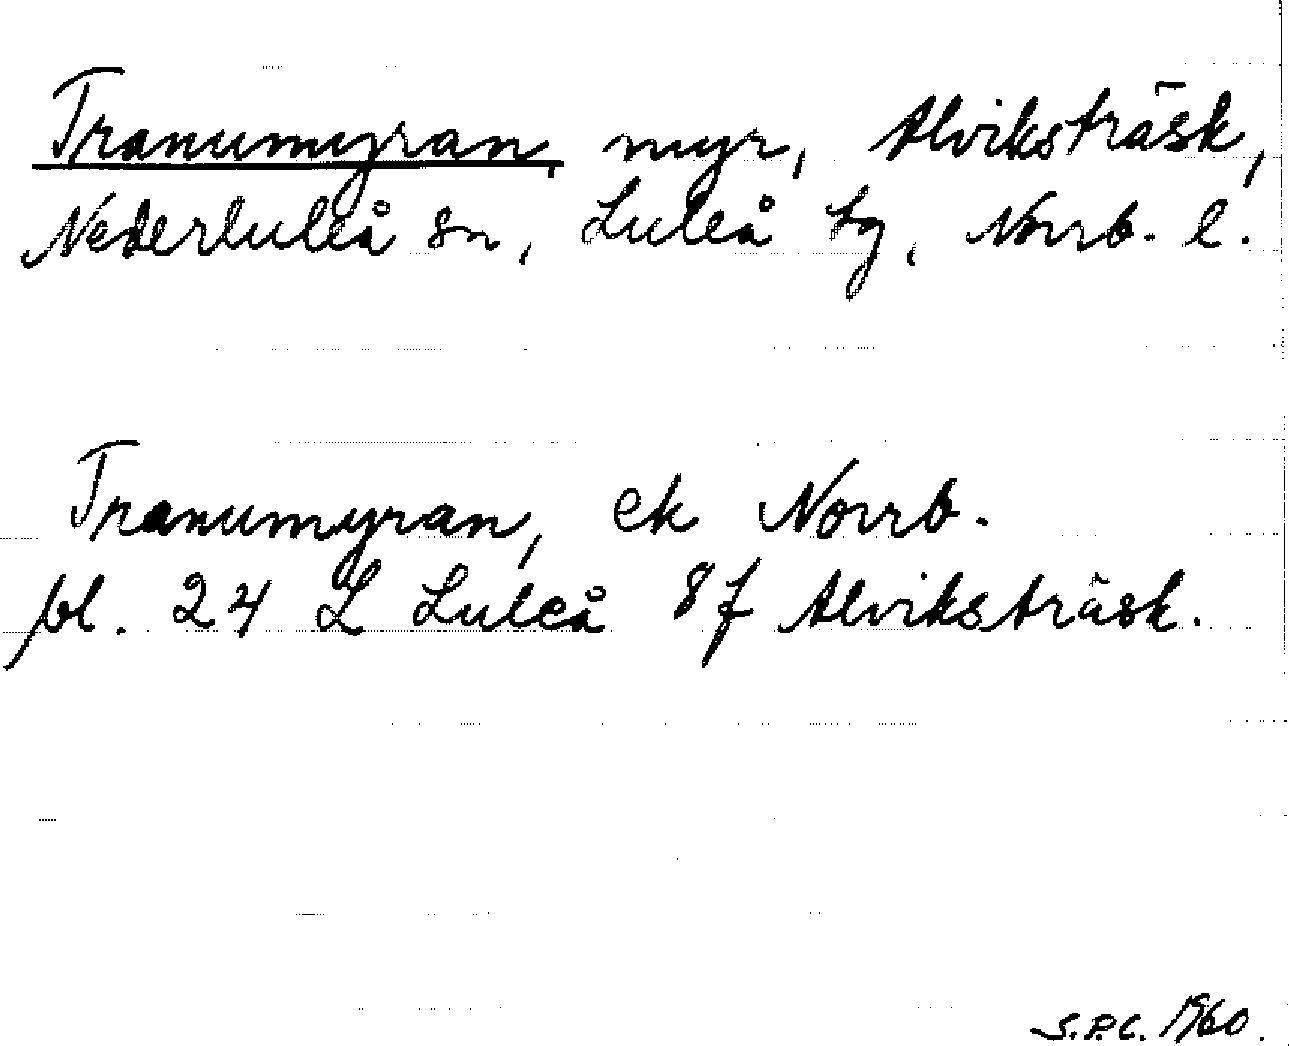 Tranumyran, myr, Alviksträsk,
Nederluleå sn, Luleå tg, Norrb. l.
Tranumyran, ek Norrb.
bl. 24 L Luleå 8f Alviksträsk.
S.P.C. 1960.